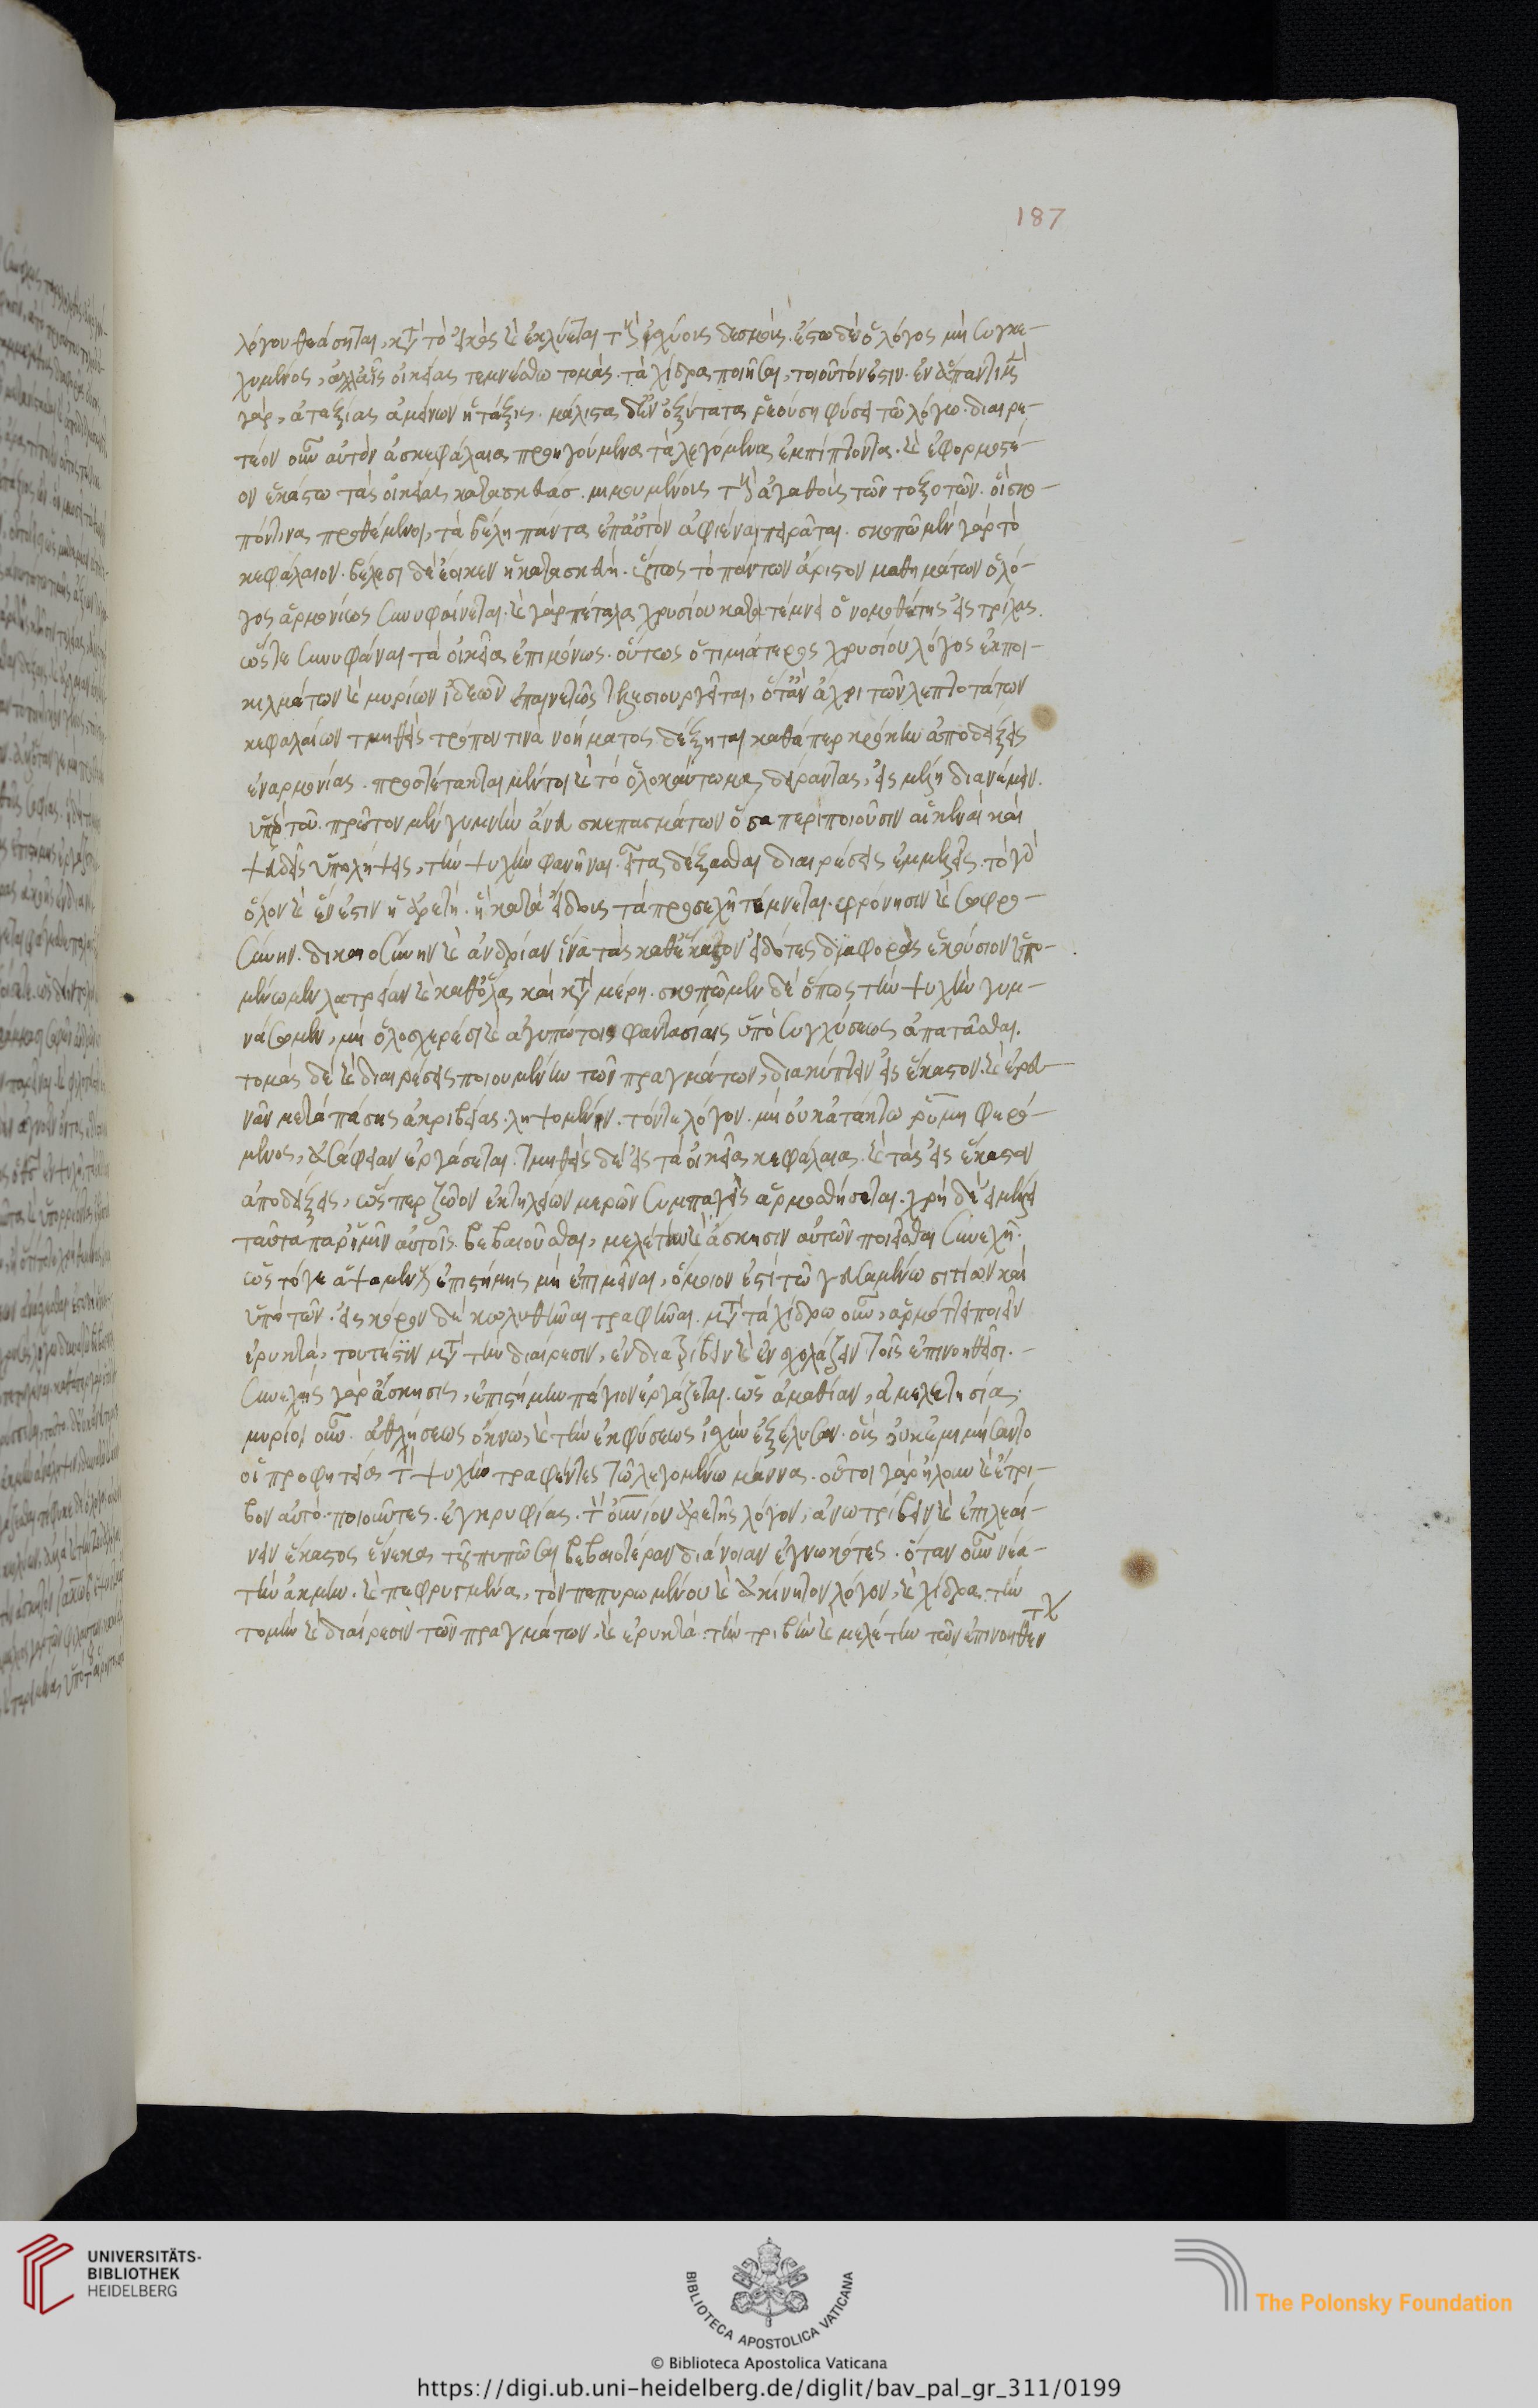 187
λόγου θεάσηται, κατὰ τὸ εἰκὸς καὶ ἐκλύεται τοῖς ἰσχύοις δεσμοῖς. ἔστω δὲ ὁ λόγος μὴ συγκε-
χυμένος, ἀλλ' εἰς οἰκείας τεμνέσθω τομάς. τὰ χίδρα ποιῆσαι, τοιοῦτόν ἐστιν. ἐν ἅπαντι
γὰρ, ἀταξίας ἀμείνων ἡ τάξις. μάλιστα δ' ἐν ὀξύτατα ῥεούσῃ φύσει τῷ λόγῳ. διαιρε-
τέον οὖν αὐτὸν εἰς κεφάλαια προηγούμενα τὰ λεγόμενα ἐμπίπτοντα. καὶ ἐφορμοστέ-
ον ἑκάστῳ τὰς οἰκείας κατασκευάς. μιμουμένοις τοὺς ἀγαθοὺς τῶν τοξοτῶν. οἳ σκο-
πόν τινα προθέμενοι, τὰ βέλη πάντα ἐπ' αὐτὸν ἀφιέναι πειρᾶται. σκοπῷ μὲν γὰρ τὸ
κεφάλαιον. βέλεσι δὲ ἔοικεν ἡ κατασκευή. οὕτως τὸ πάντων ἄριστον μαθημάτων ὁ λό-
γος ἁρμονίως συνυφαίνεται. καὶ γὰρ πέταλα χρυσίου κατατέμνει ὁ νομοθέτης εἰς τρίχας.
ὥστε συνυφάναι τὰ οἰκεῖα ἐπιμόνως. οὕτως ὁ τιμιώτερος χρυσίου λόγος ἐκ ποι-
κιλμάτων καὶ μυρίων ἰδεῶν ἐπαινετῶς τελεσιουργεῖται, ὅταν ἄχρι τῶν λεπτοτάτων
κεφαλαίων τμηθεὶς τρόπον τινὰ νοήματος δέξηται καθάπερ κρόκην ἀποδείξεις
ἐναρμονίας. προστέτακται μέντοι καὶ τὸ ὁλοκαύτωμα δείραντας, εἰς μέλη διανέμειν.
ὑπὲρ τοῦ. πρῶτον μὲν γυμνὴν ἄνευ σκεπασμάτων ὅσα περιποιοῦσιν αἱ κεναὶ καὶ
ψευδεῖς ὑπολήψεις, τὴν ψυχὴν φανῆναι. εἶτα δέξασθαι διαιρέσεις ἐμμελεῖς. τὸ γὰρ
ὅλον καὶ ἕν ἐστιν ἡ ἀρετή. ἣ κατὰ εἴδους τὰ προσεχῆ τέμνεται. φρόνησιν καὶ σωφρο-
σύνην. δικαιοσύνην καὶ ἀνδρίαν ἵνα τὰς καθ' ἕκαστον εἰδότες διαφορὰς ἑκούσιον ὑπο-
μένωμεν λατρείαν καὶ καθ' ὅλας καὶ κατὰ μέρη. σκοπῶμεν δὲ ὅπως τὴν ψυχὴν γυμ-
νάσωμεν, μὴ ὁλοσχερέσι καὶ ἀτυπώτοις φαντασίαις ὑπὸ συγχύσεως ἀπατᾶσθαι.
τομὰς δὲ καὶ διαιρέσεις ποιουμένην τῶν πραγμάτων, διακύπτειν εἰς ἕκαστον. καὶ ἐρευ-
νᾶν μετὰ πάσης ἀκριβείας. τόν τε λόγον. μὴ οὐκ ἀτάκτῳ ῥύμῃ φερό-
μενος, ἀσάφειαν ἐργάσεται. τμηθεὶς δὲ εἰς τὰ οἰκεῖα κεφάλαια. καὶ τὰς εἰς ἕκαστον
ἀποδείξεις, ὥσπερ ζῷον ἐκ τελείων μερῶν συμπαγὲς ἁρμοσθήσεται. χρὴ δὲ εἰ μέλλει
ταῦτα παρ' ἡμῖν αὐτοῖς βεβαιοῦσθαι, μελέτην καὶ ἄσκησιν αὐτῶν ποιεῖσθαι συνεχῆ.
ὡς τό γε ἁψαμένους ἐπιστήμης μὴ ἐπιμεῖναι, ὅμοιον ἐστὶ τῷ γευσαμένῳ σιτίων καὶ
ποτῶν. εἰς κόρον δὲ κωλυθῆναι τραφῆναι. μετὰ τὰ χίδρα οὖν, ἁρμόττει ποιεῖν
ἐρυκτά, τουτέστιν μετὰ τὴν διαίρεσιν, ἐνδιατρίβειν καὶ ἐνσχολάζειν τοῖς ἐπινοηθεῖσι.
συνεχὴς γὰρ ἄσκησις, ἐπιστήμην πάγιον ἐργάζεται. ὡς ἀμαθίαν, ἀμελετησία.
μυρίοι οὖν. ἀθλήσεως ὄκνῳ, καὶ τὴν ἐκ φύσεως ἰσχὺν ἐξέλυσαν. οἷς οὐκ ἐμιμήσαντο
οἱ προφητείας τὴν ψυχὴν τραφέντες τῷ λεγομένῳ μάννα. οὗτοι γὰρ ἤλουν καὶ ἔτρι-
βον αὐτό. ποιοῦντες. ἐγκρυφίας. τὸν οὐράνιον ἀρετῆς λόγον, ἄνω τρίβειν καὶ ἐπιλεαί-
νειν ἕκαστος ἕνεκα τοῦ τυπῶσαι βεβαιοτέραν διάνοιαν ἐγνωκότες. ὅταν οὖν νέα-
τὴν ἀκμὴν. καὶ πεφρυγμένα, τὸν πεπυρωμένου καὶ ἀκίνητον λόγον, καὶ χίδρα. τὴν
τομὴν καὶ διαίρεσιν τῶν πραγμάτων, καὶ ἐρυκτά. τὴν τριβὴν καὶ μελέτην τῶν ἐπινοηθέν
UNIVERSITÄTS-
BIBLIOTHEK
HEIDELBERG
BIBLIOTECA APOSTOLICA VATICANA
© Biblioteca Apostolica Vaticana
The Polonsky Foundation
https://digi.ub.uni-heidelberg.de/diglit/bav_pal_gr_311/0199